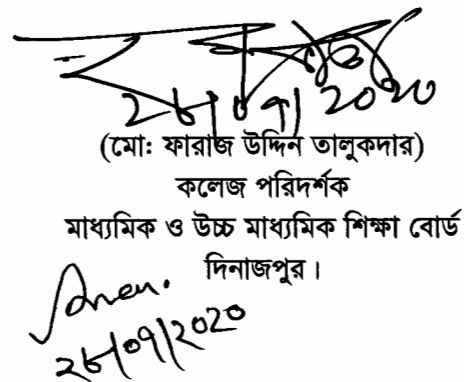 ২৮/০৭/২০২০
(মো: ফারাজ উদ্দিন তালুকদার)
কলেজ পরিদর্শক
মাধ্যমিক ও উচ্চ মাধ্যমিক শিক্ষা বোর্ড
দিনাজপুর।
২৮/০৭/২০২০